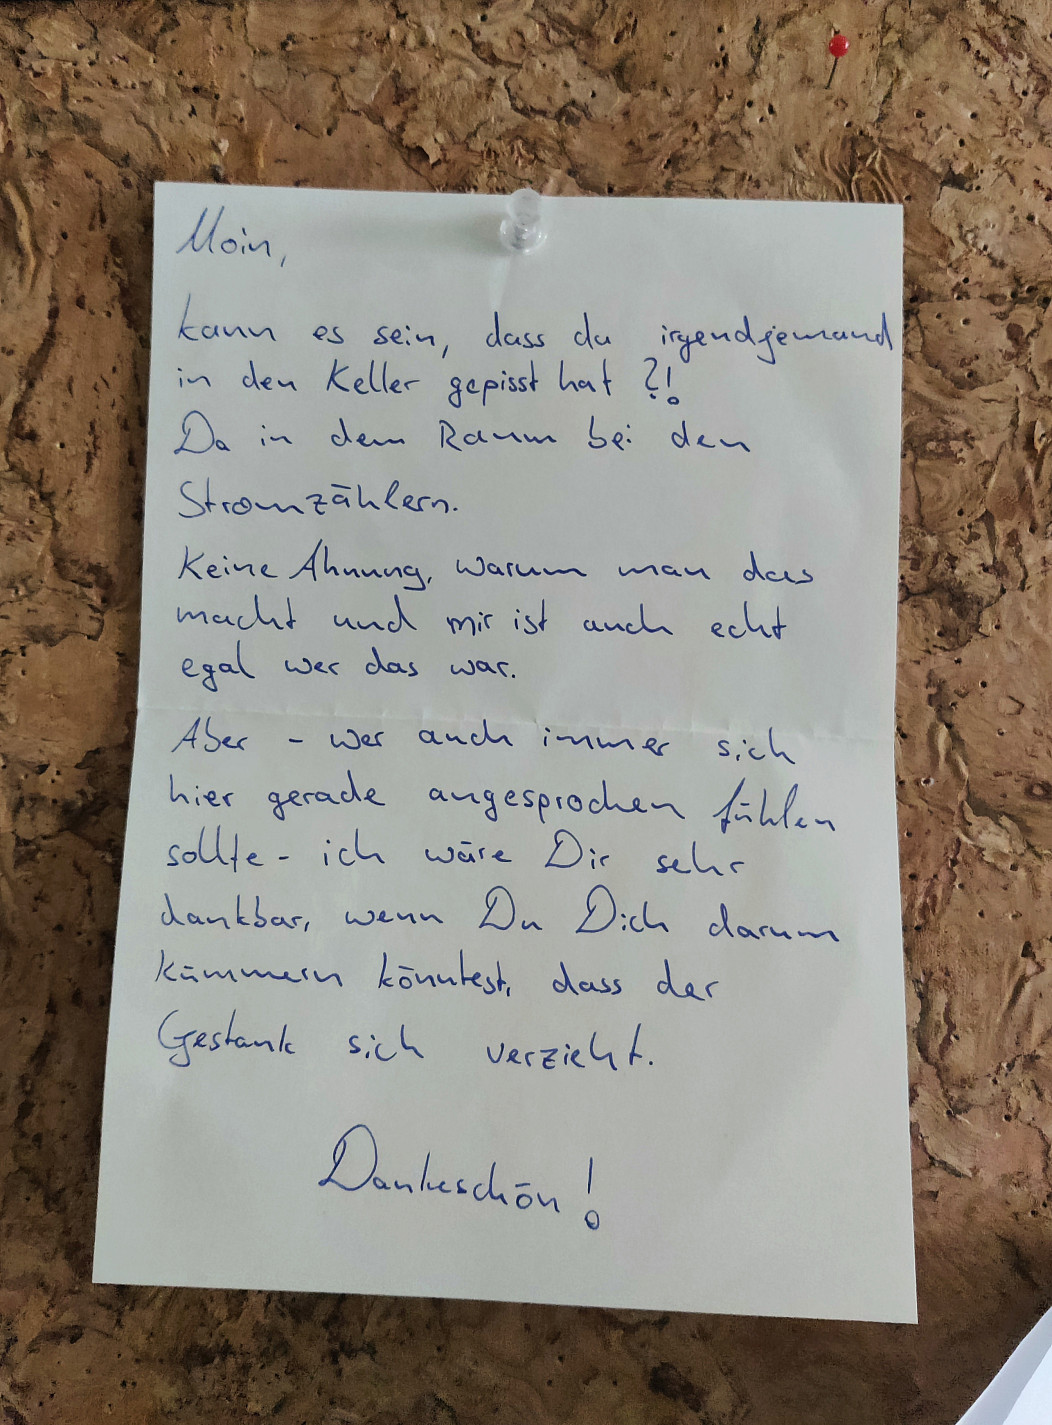 Moin,
kann es sein, dass da irgendjemand
in den Keller gepisst hat ?!
Da in dem Raum bei den
Stromzählern.
Keine Ahnung, warum man das
macht und mir ist auch echt
egal wer das war.
Aber - wer auch immer sich
hier gerade angesprochen fühlen
sollte - ich wäre Dir sehr
dankbar, wenn Du Dich darum
kümmern könntest, dass der
Gestank sich verzieht.
Dankeschön!